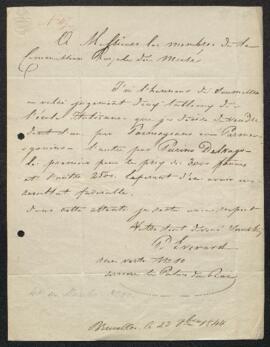 A Messieurs les membres de la
Commission Royale du Musée
J'ai l'honneur de soumettre
à votre jugement tableaux de
l'école Italienne que je désire vendre
dont un par Parmegiano
l'autre par Perino Delvaga
le premier pour le prix de 3000 francs
et l'autre 2500. l'espérant d'en avoir un
résultat favorable.
dans cette attente je reste avec respect
Votre tout dévoué
P. Everard
rue verte No 10
derrière le Palais du Roi
Bruxelles, le 23 1844